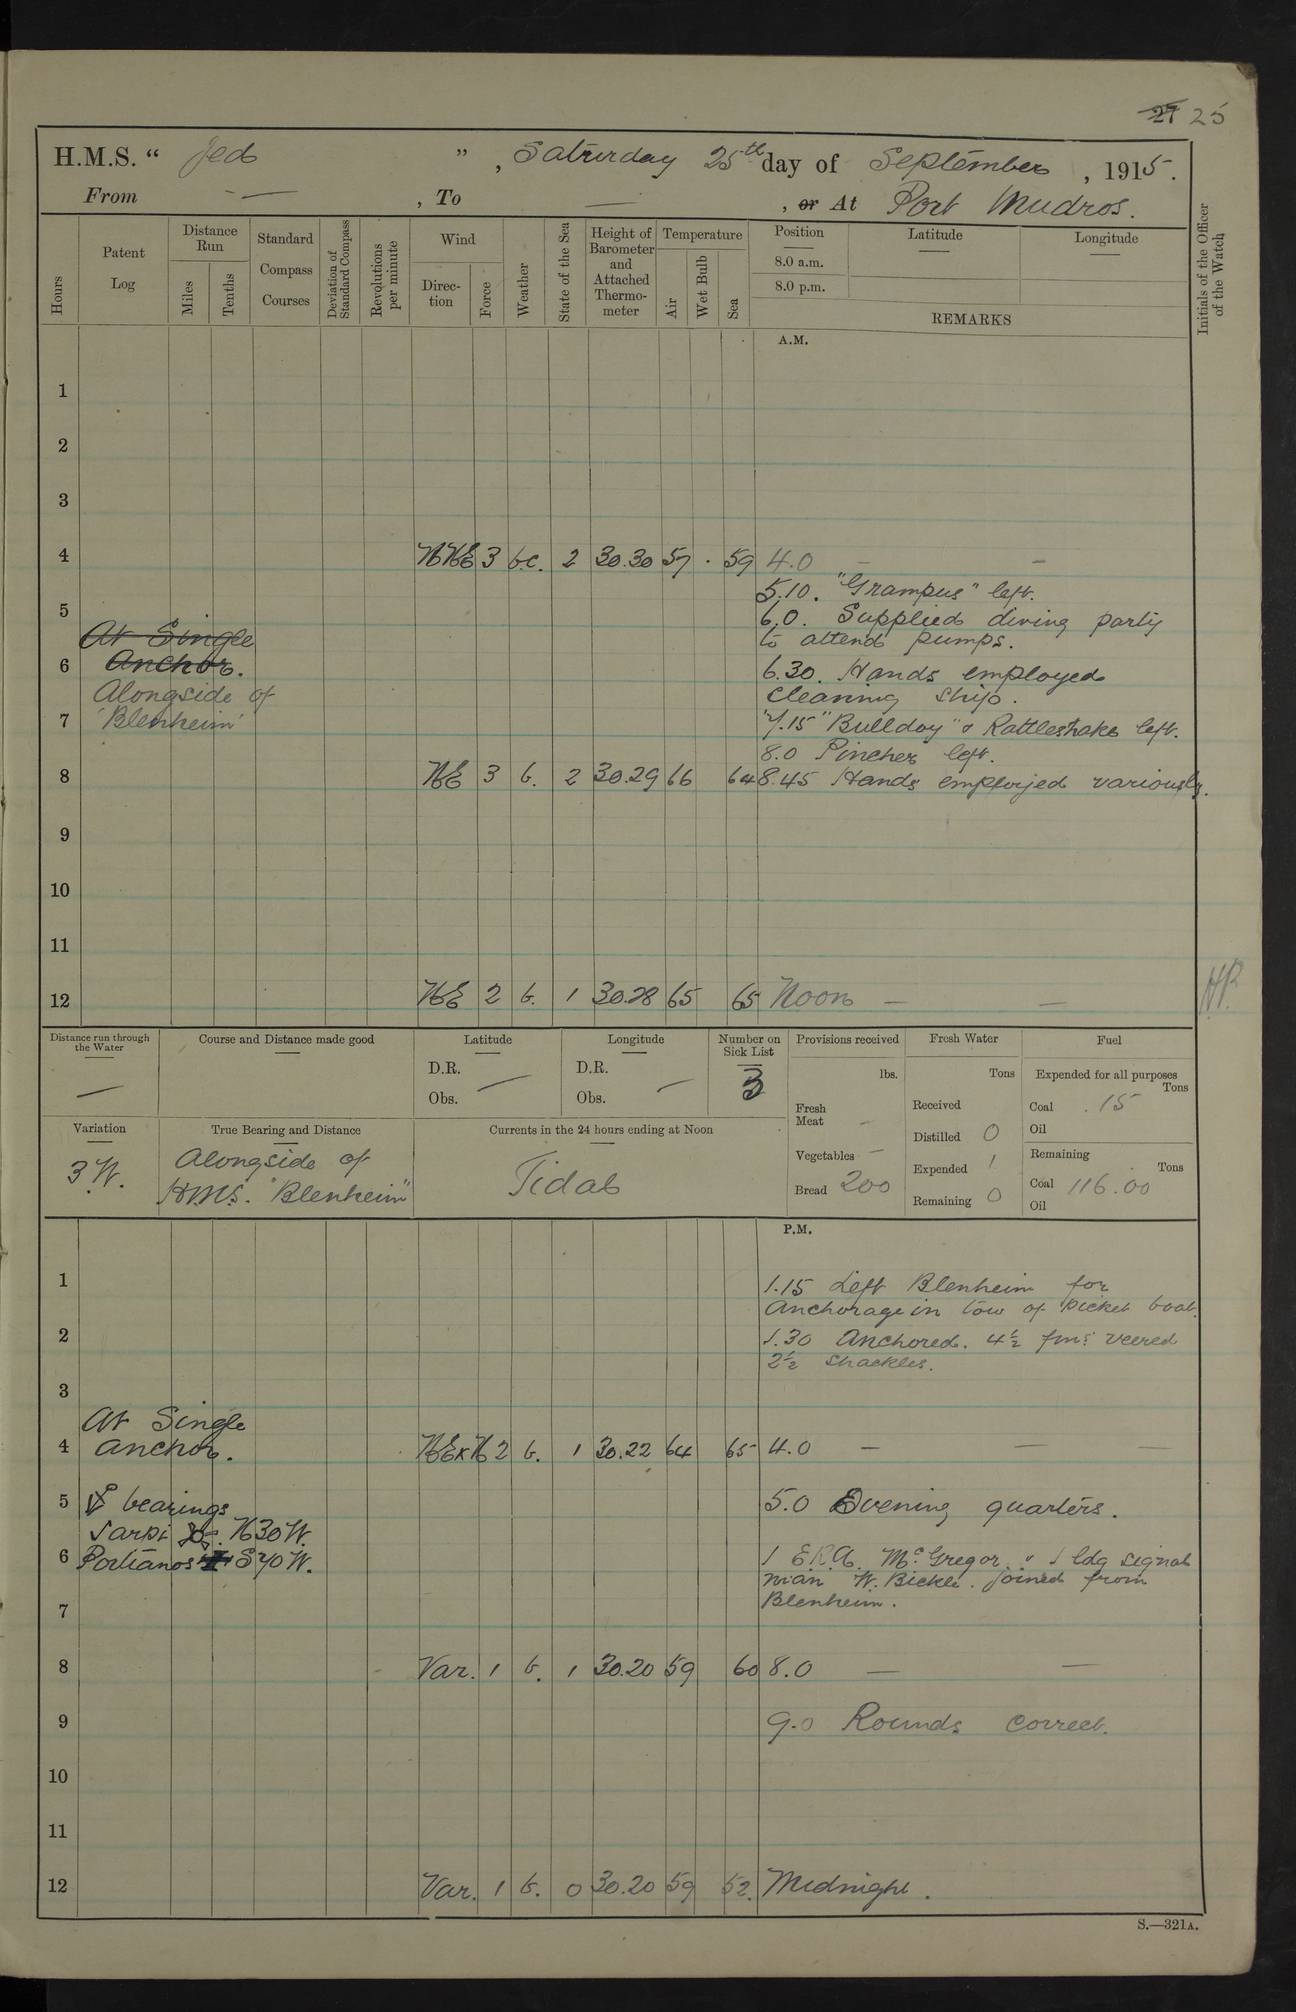 27 25
H.M.S. “ Jed ” , Saturday 25th day of September , 1915.
From — , To — , or At Port Mudros.
Hours
Patent Log
Distance Run
Miles
Tenths
Standard Compass Courses
Deviation of Standard Compass
Revolutions per minute
Wind
Direction
Force
Weather
State of the Sea
Height of Barometer and Attached Thermometer
Temperature
Air
Wet Bulb
Sea
Position
8.0 a.m.
8.0 p.m.
Latitude
Longitude
REMARKS
Initials of the Officer of the Watch
A.M.
1
2
3
4 NNE 3 bc. 2 30.30 57 . 59 4.0 — —
5.10. "Grampus" left.
5
6.0. Supplied diving party
At Single
to attend pumps.
6 Anchor.
6.30. Hands employed
Alongside of
cleaning ship.
7 'Blenheim'
7.15 "Bulldog" & Rattlesnake left.
8.0 Pincher left.
8 NE 3 b. 2 30.29 66 64 8.45 Hands employed variously.
9
10
11
12 NE 2 b. 1 30.28 65 65 Noon — —
Distance run through the Water
—
Course and Distance made good
Latitude
D.R.
Obs. —
Longitude
D.R.
Obs. —
Number on Sick List
3
Provisions received
lbs.
Fresh Meat -
Vegetables -
Bread 200
Fresh Water
Tons
Received
Distilled 0
Expended 1
Remaining 0
Fuel
Expended for all purposes
Tons
Coal .15
Oil
Remaining
Tons
Coal 116.00
Oil
Variation
3.W.
True Bearing and Distance
Alongside of
H.M.S. "Blenheim"
Currents in the 24 hours ending at Noon
Tidal
P.M.
1
1.15 Left Blenheim for
Anchorage in tow of picket boat.
2
1.30 Anchored. 4½ fms veered
2½ shackles.
3
At Single
4 anchor. NExN 2 b. 1 30.22 64 65 4.0 — — —
5 bearings
5.0 Evening quarters.
Sarpi N30W.
6 Portianos S70W.
1 E.R.A. McGregor. " 1 ldg signal
man W. Bickle. joined from
7
Blenheim.
8 Var. 1 b. 1 30.20 59 60 8.0 — —
9
9.0 Rounds correct.
10
11
12 Var. 1 b. 0 30.20 59 52. Midnight.
S.—321A.